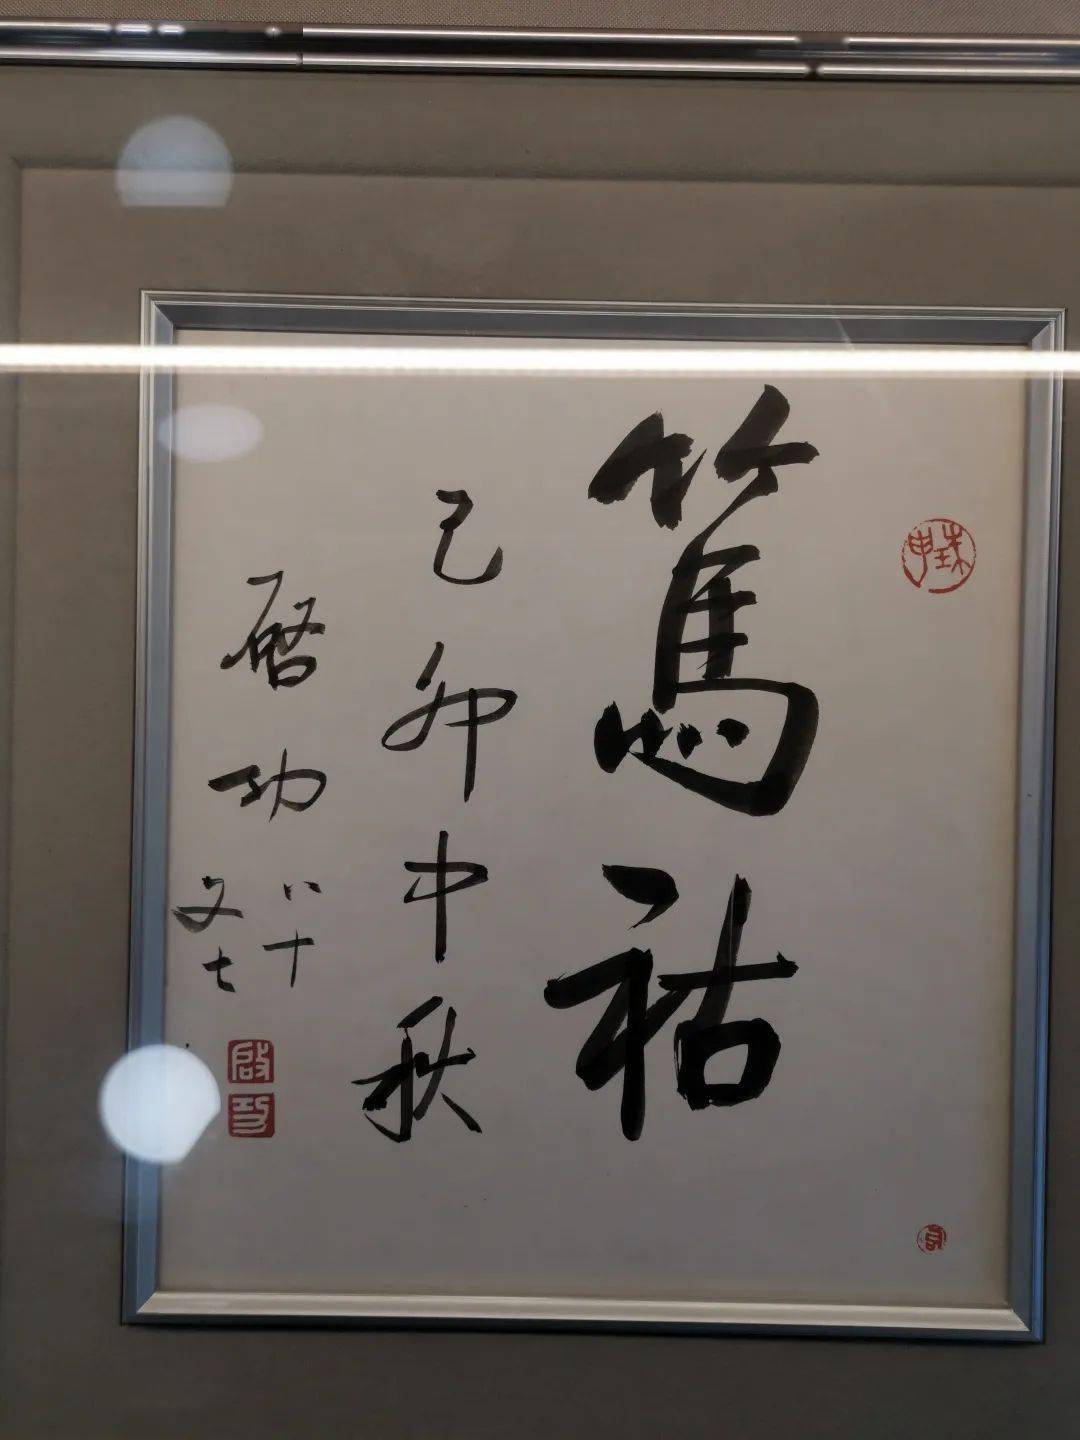 篤祜
己卯中秋
啓功
八十
又七
啟功